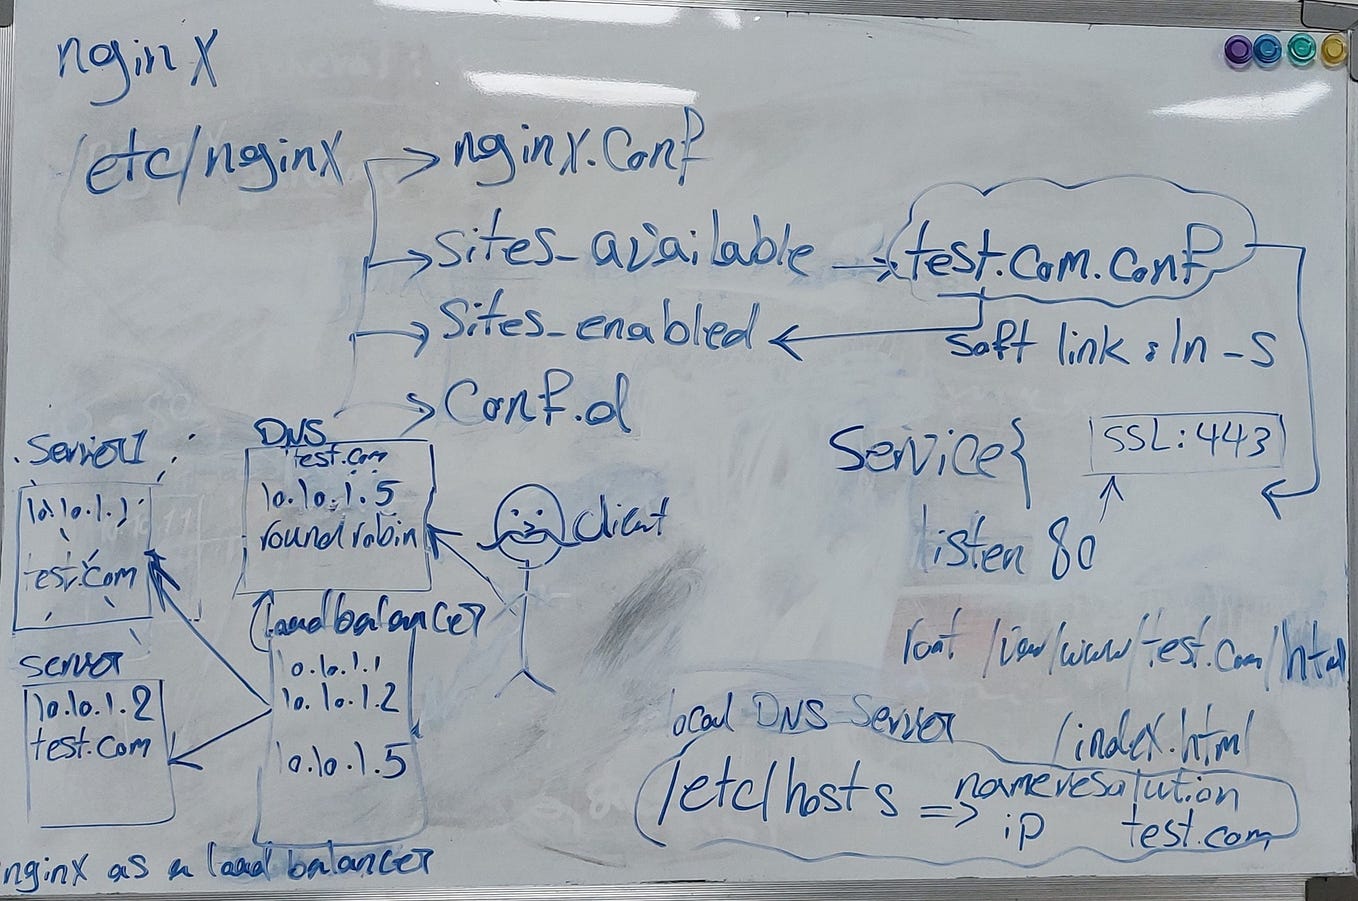 nginx
/etc/nginx → nginx.conf
Sites_available → test.com.conf
Sites_enabled
soft link : ln -s
Conf.d
Service {
SSL:443
listen 80
root /var/www/test.com/html
/index.html
DNS
test.com
10.10.1.5
round robin
client
Server1
10.10.1.1
test.com
server
10.10.1.2
test.com
Load balancer
10.10.1.1
10.10.1.2
10.10.1.5
nginx as a load balancer
local DNS Server
/etc/hosts => name resolution
ip test.com